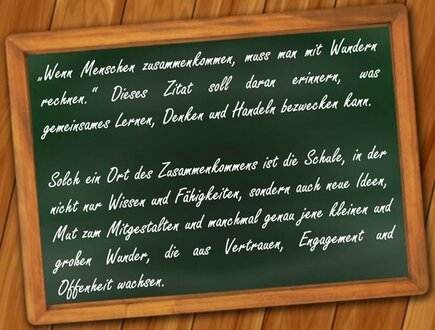 „Wenn Menschen zusammenkommen, muss man mit Wundern
rechnen.“ Dieses Zitat soll daran erinnern, was
gemeinsames Lernen, Denken und Handeln bezwecken kann.
Solch ein Ort des Zusammenkommens ist die Schule, in der
nicht nur Wissen und Fähigkeiten, sondern auch neue Ideen,
Mut zum Mitgestalten und manchmal genau jene kleinen und
großen Wunder, die aus Vertrauen, Engagement und
Offenheit wachsen.